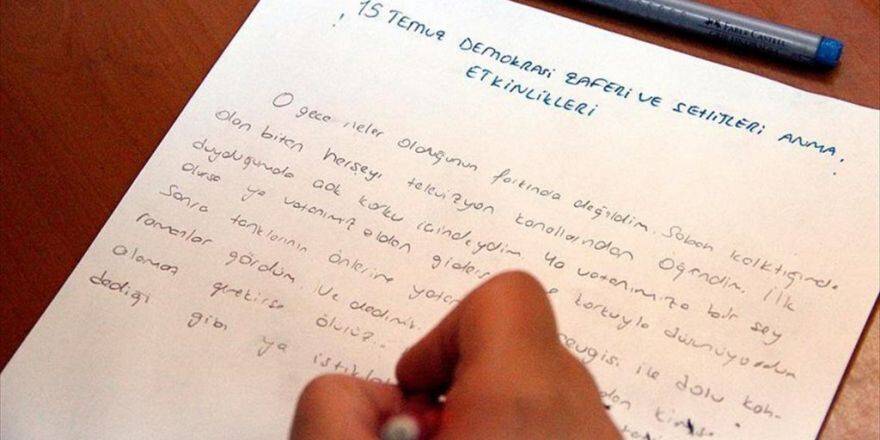 15 TEMUZ DEMOKRASİ ZAFERİ VE ŞEHİTLERİ ANMA
ETKİNLİKLERİ
O gece neler olduğunun farkında değildim. Sabah kalktığımda
olan biten herşeyi televizyon kanallarından öğendim. İlk
duyduğumda çok korku içindeydim ya vatanımıza bir şey
olursa ya vatanımız elden giderse korkuyla düşünüyordum
Sonra tankların önlerine sevgisi ile dolu kah-
ramanlar gördüm. Ve dedimki
alamaz gerekirse ölürüz..
dediği gibi ya
FABER CASTELL